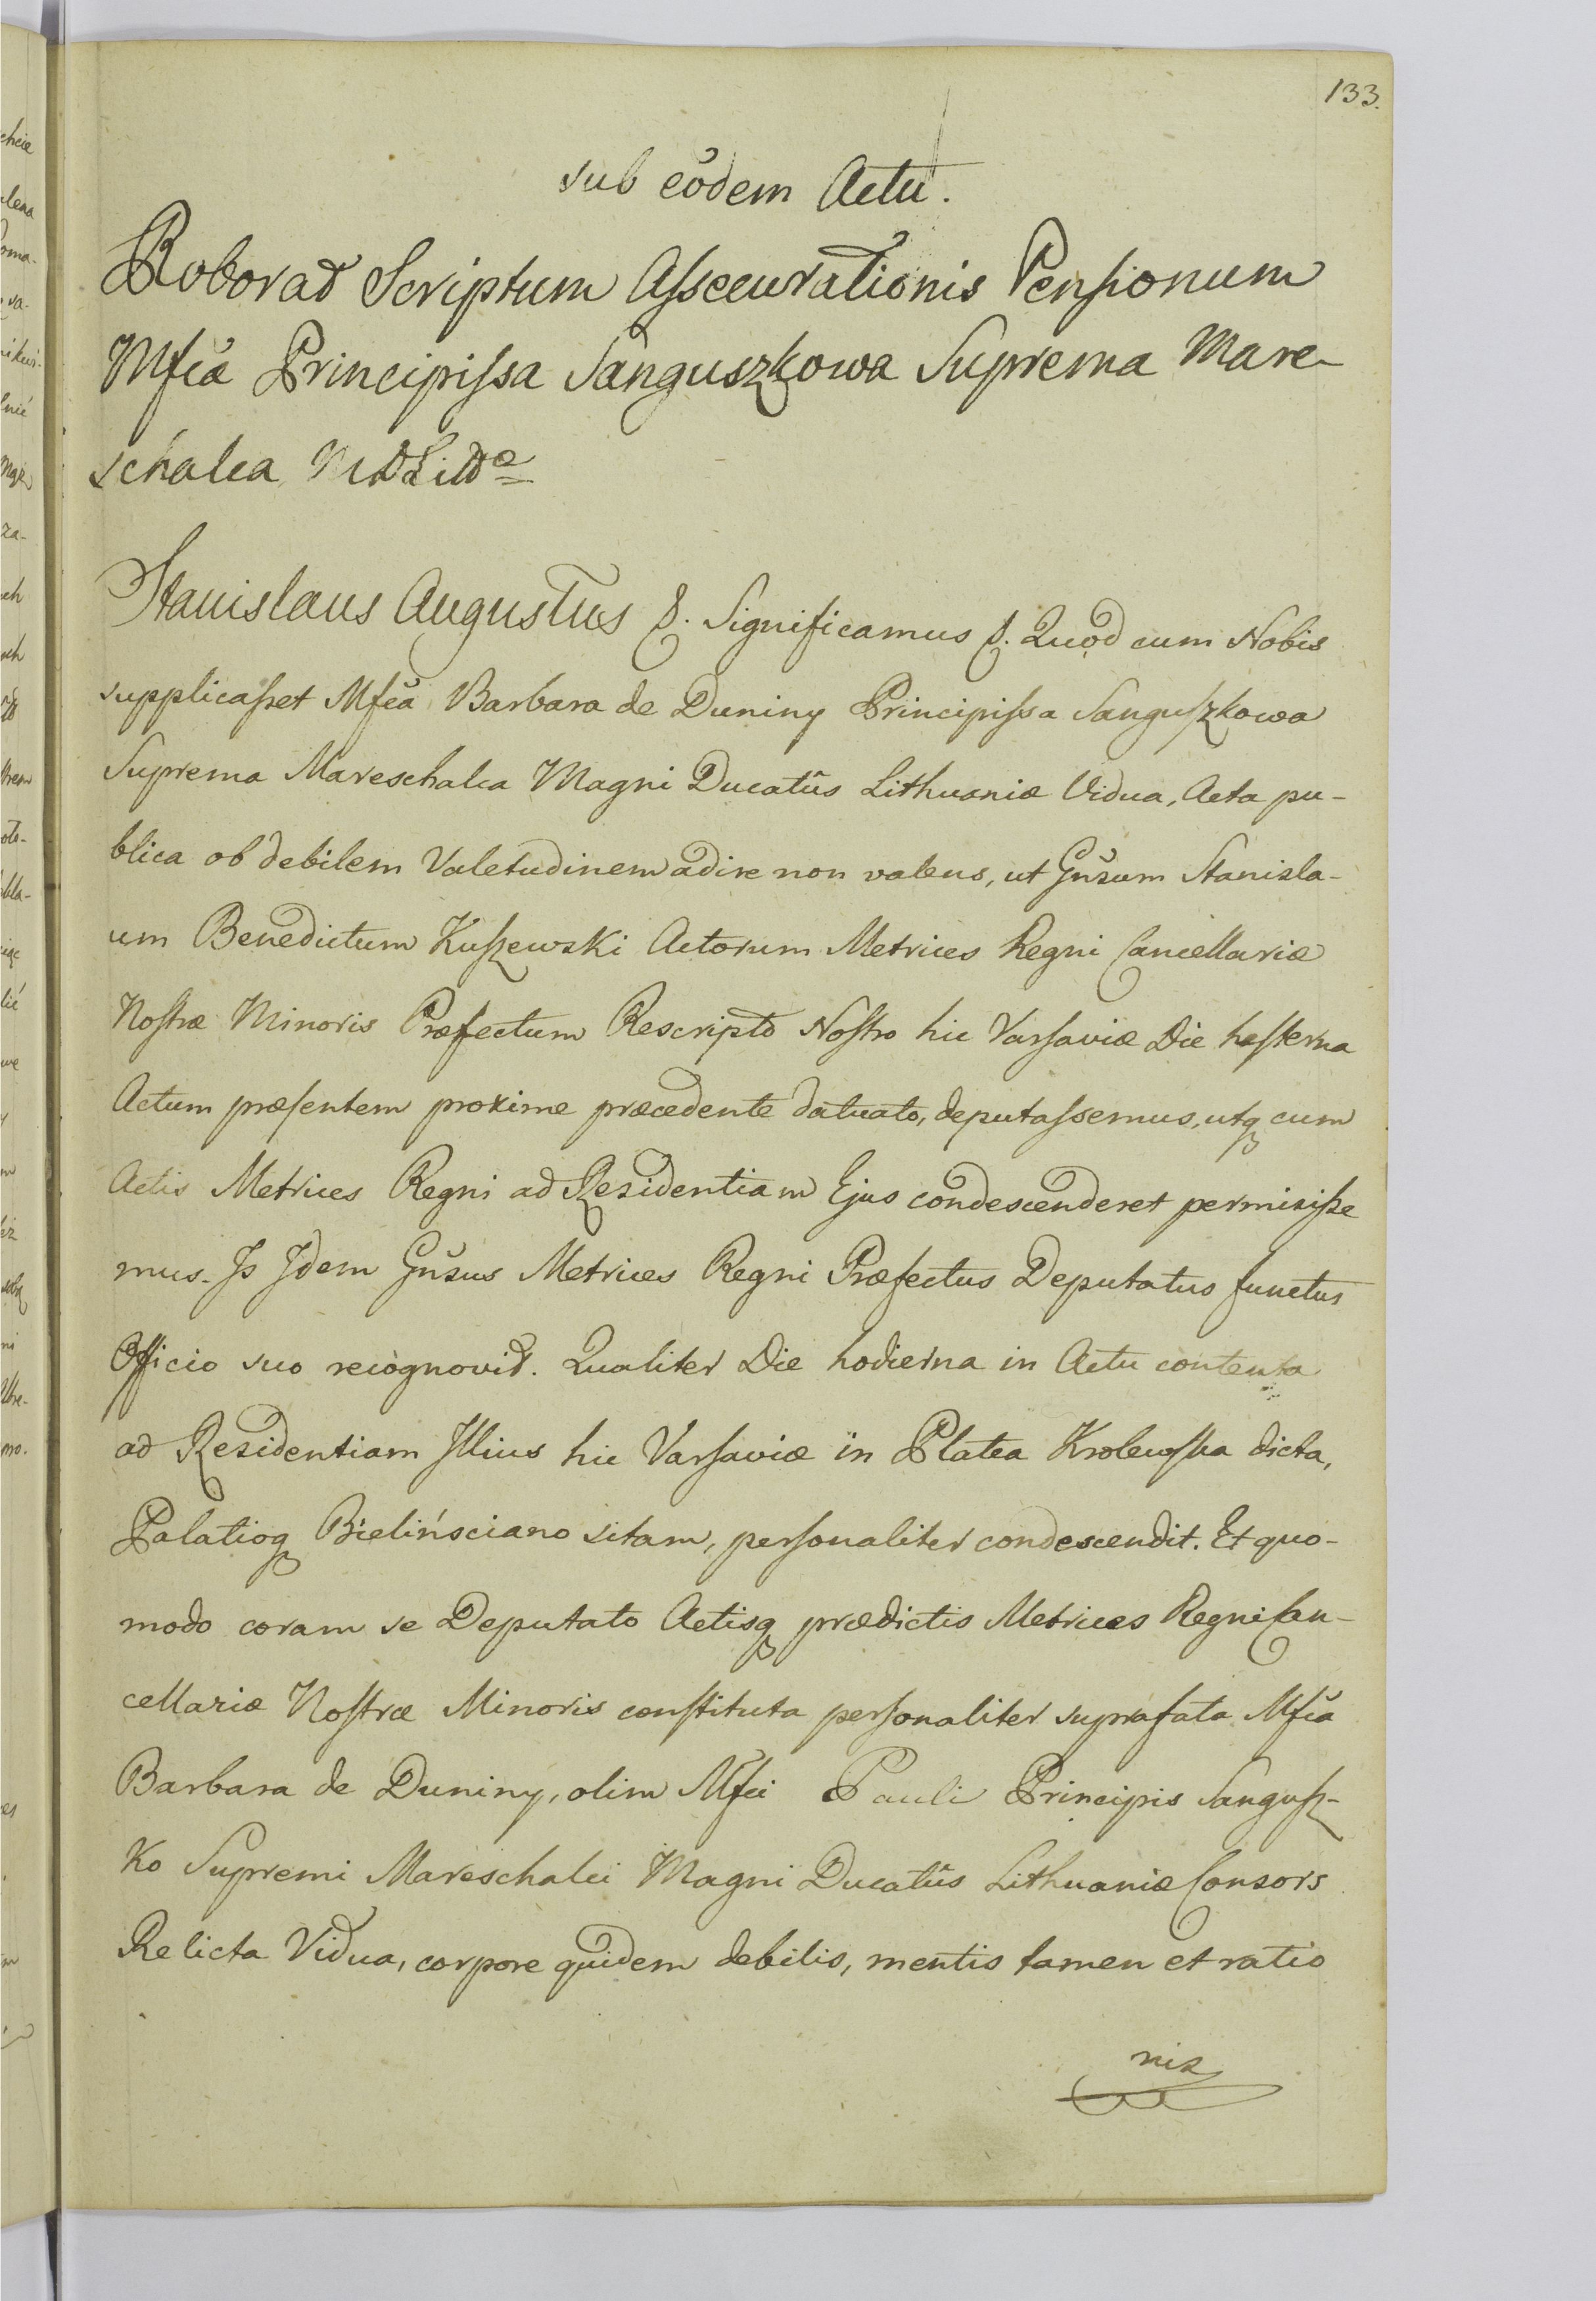 133.
sub eodem Actu.
Roborat Scriptum Assecurationis Pensionum
Mfca Principissa Sanguszkowa Suprema Mare-
schalca MDLitt
Stanislaus Augustus &. Significamus &. Quod cum Nobis
supplicasset Mfca Barbara de Duniny Principissa Sanguszkowa
Suprema Mareschalca Magni Ducatûs Lithuaniæ Vidua, Acta pu-
blica ob debilem Valetudinem adire non valens, ut Gnsum Stanisla-
um Benedictum Kuszewski Actorum Metrices Regni Cancellariæ
Nostræ Minoris Præfectum Rescripto Nostro hic Varsaviæ Die hesterna
Actum præsentem proxime præcedente datuato, deputassemus, utq cum
Actis Metrices Regni ad Residentiam Ejus condescenderet permisisse
mus. Is Idem Gnsus Metrices Regni Præfectus Deputatus functus
Officio suo recognovit. Qualiter Die hodierna in Actu contenta
ad Residentiam Illius hic Varsaviæ in Platea Krolewska dicta,
Palatioq Bielińsciano sitam, personaliter condescendit. Et quo-
modo coram se Deputato Actisq prædictis Metrices Regni Can-
cellariæ Nostræ Minoris constituta personaliter suprafata Mfca
Barbara de Duniny, olim Mfci Pauli Principis Sangusz-
ko Supremi Mareschalci Magni Ducatûs Lithuaniæ Consors
Relicta Vidua, corpore quidem debilis, mentis tamen et ratio
nis